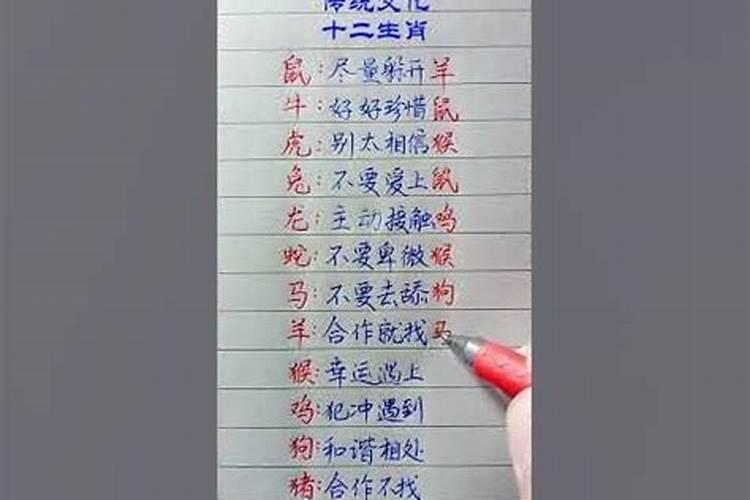 传统文化
十二生肖
鼠:尽量躲开羊
牛:好好珍惜鼠
虎:别太相信猴
兔:不要爱上鼠
龙:主动接触鸡
蛇:不要卑微猴
马:不要去舔狗
羊:合作就找马
猴:幸运遇上
鸡:犯冲遇到
狗:和谐相处
猪:合作不找